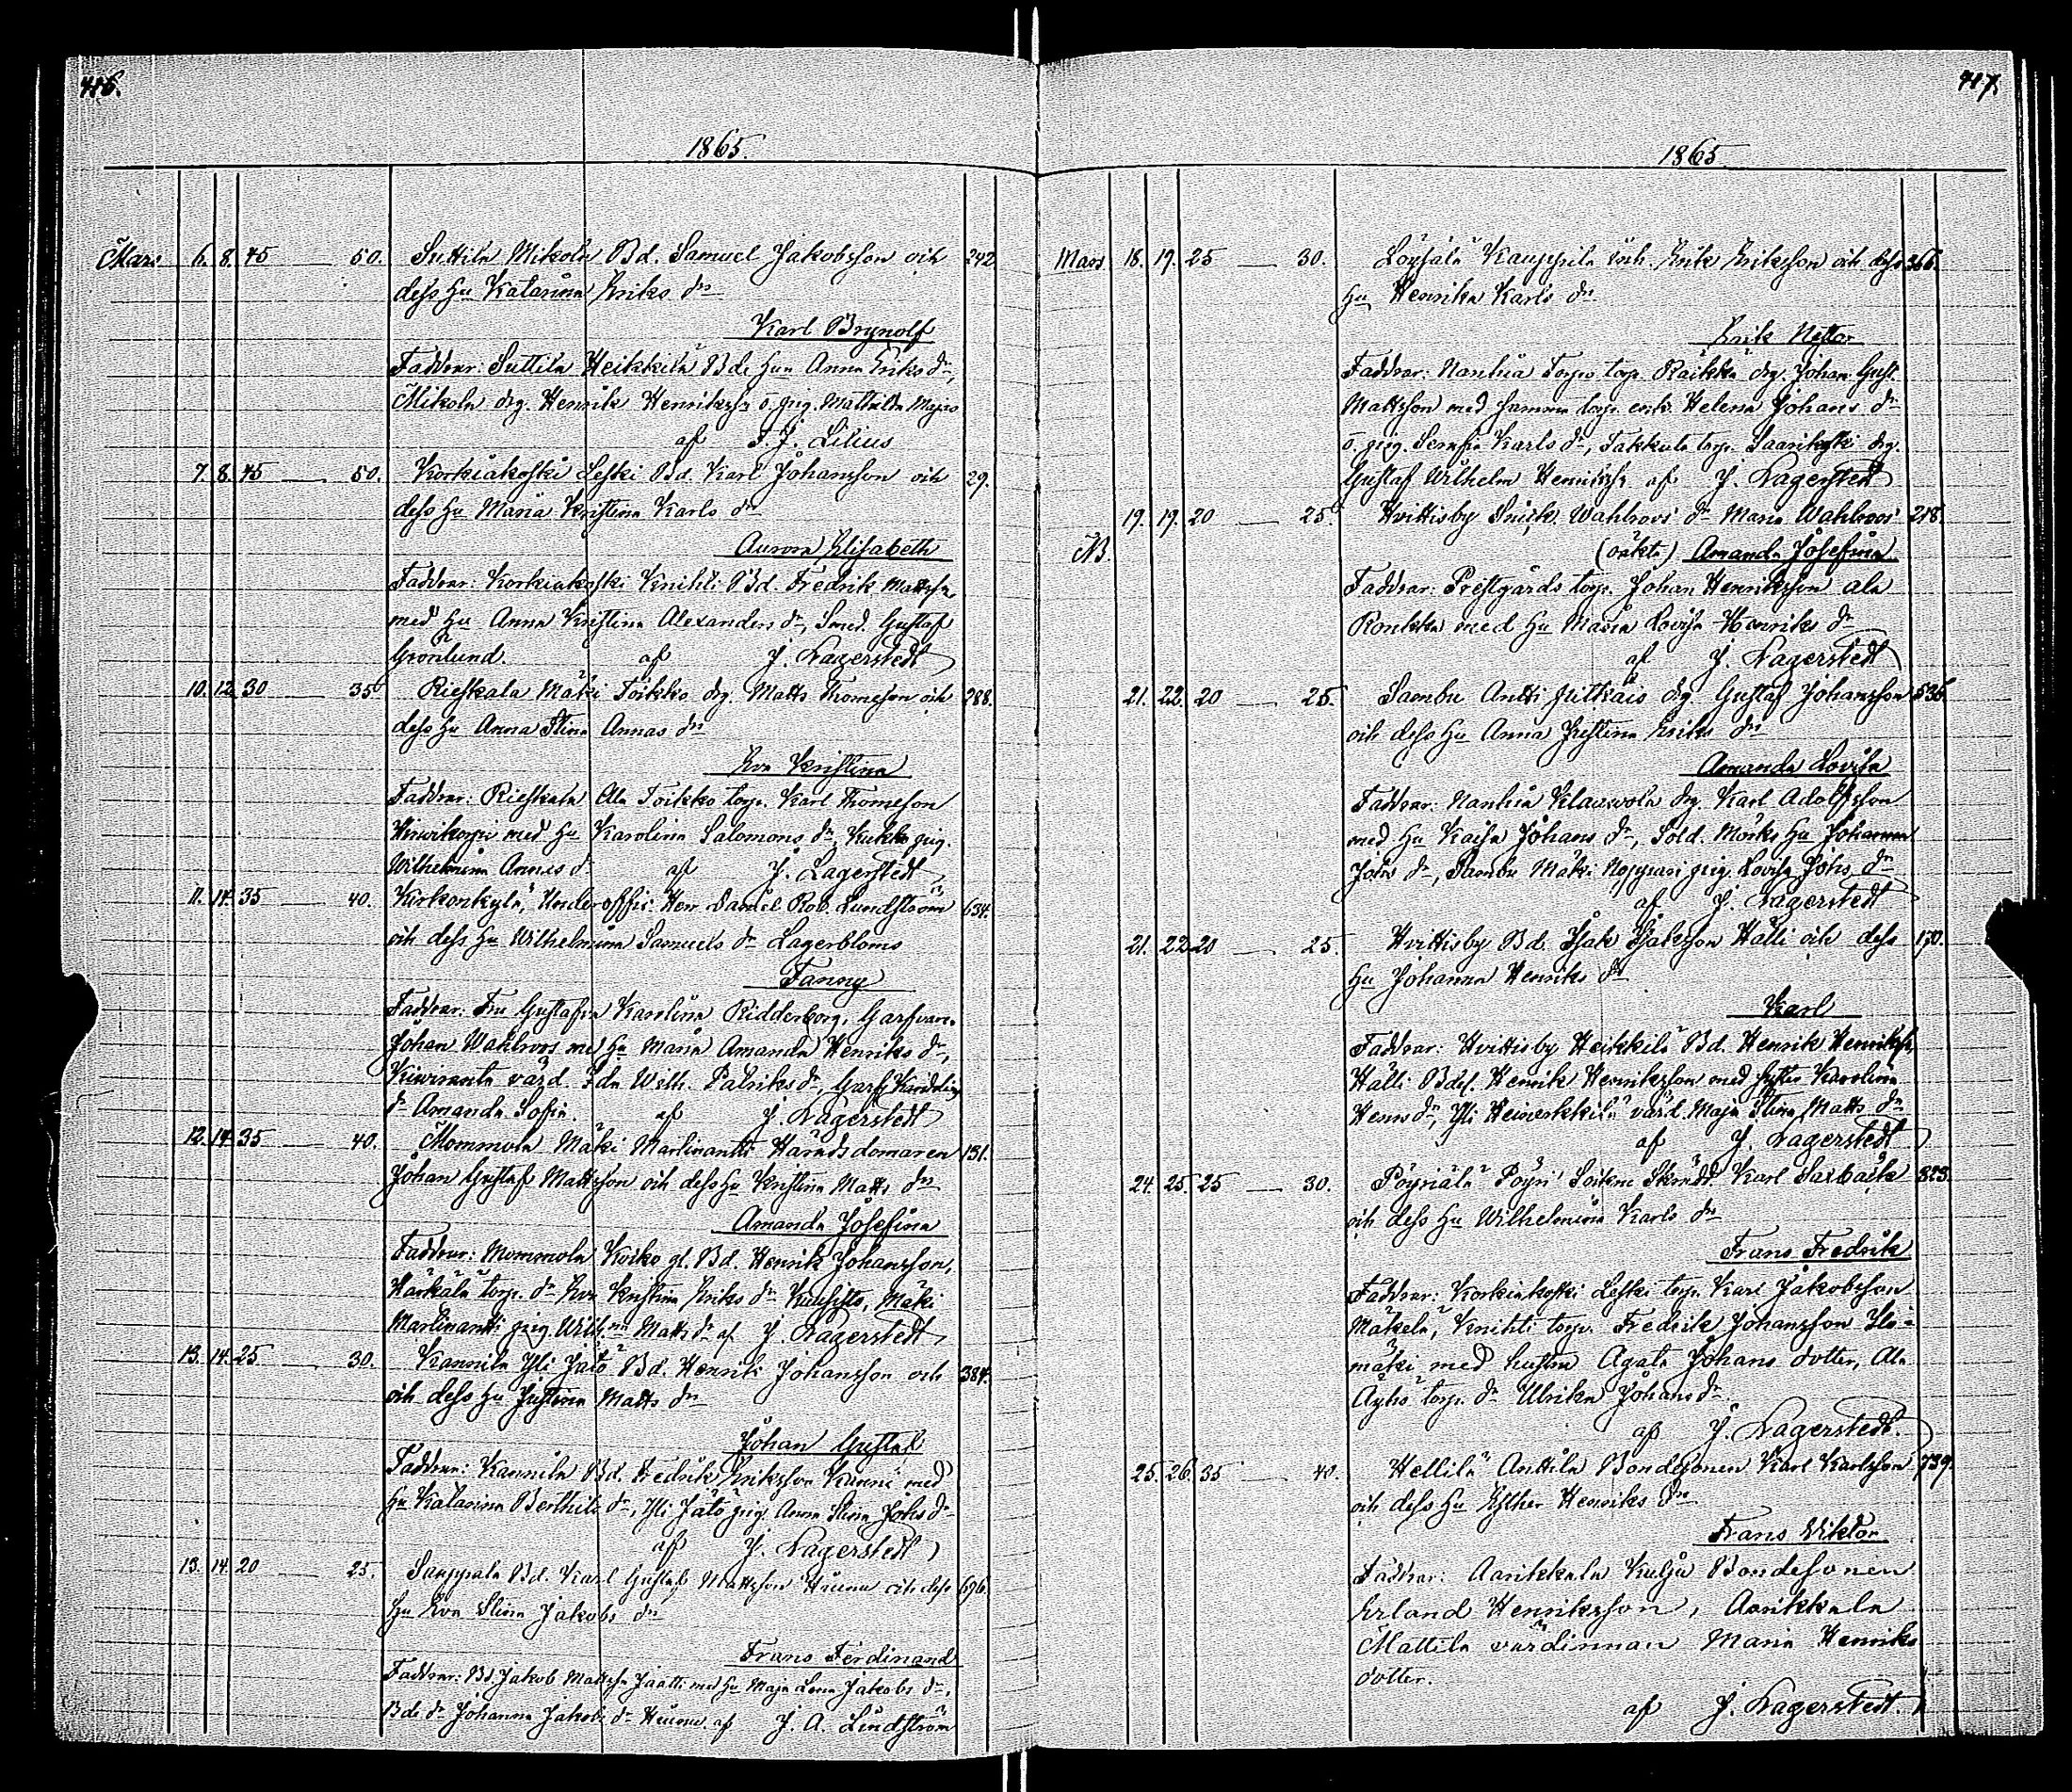 416.
1865.
Mars 6. 8. 45 — 50. Suttila Mikola Bd. Samuel Jakobsson och 242
dess hu Katarina Eriks dr
Karl Brynolf
Faddrar: Suttila Heikkilä Bde hu Anna Eriks dr,
Mikola drg. Henrik Henrikss. o. pig. Mathilda Majas
af F. J. Lilius
7. 8. 45 — 50. Korkiakoski Leski Bd. Karl Johansson och 29.
dess hu Maria Kristina Karls dr
Aurora Elisabeth
Faddrar: Korkiakoski Knihti Bd. Fredrik Mattss.
med hu Anna Kristina Alexanders dr, Smed. Gustaf
Grönlund. af J. Lagerstedt
10. 12. 30 — 35 Rieskala Mäki Toikko drg. Matts Thomeson och 288.
dess hu Anna Stina Annas dr
Eva Kristina
Faddrar: Rieskala Ala Toikko torp. Karl Thomeson
Hirwikorpi med hu Karolina Salomons dr, Kukko pig.
Wilhelmina Annas dr af J. Lagerstedt
11. 14. 35 — 40. Kirkonkylä, Underoffic. Herr Daniel Rob. Lundström 634.
och dess hu Wilhelmina Samuels dr Lagerbloms
Fanny
Faddrar: Fru Gustafva Karolina Ridderborg, Garfvare
Johan Wahlroos med hu Maria Amanda Henriks dr,
Kiwiranta värd. Ida Wilh. Patriks dr, Garf.
dr Amanda Sofia. af J. Lagerstedt
12. 14. 35 — 40. Mommola Mäki Marlinantti Häradsdomaren 131.
Johan Gustaf Mattsson och dess hu Kristina Matts dr
Amanda Josefina
Faddrar: Mommola Koiko gl. Bd. Henrik Johansson,
Härkälä torp. dr Eva Kristina Eriks dr Kuusisto, Mäki
Marlinantti pig. Wilh.na Matts dr af J. Lagerstedt
13. 14. 25 — 30. Kannila Yli Jato Bd. Henrik Johansson och 384.
och dess hu Justina Matts dr
Johan Gustaf
Faddrar: Kannila Bd. Fredrik Eriksson Kanni med
hu Katarina Berthils dr, Yli Jätö pig. Anna Stina Johs dr
af J. Lagerstedt
13. 14. 20 — 25. Sauppala Bd. Karl Gustaf Mattsson och dess 696.
hu Eva Stina Jakobs dr
Frans Ferdinand
Faddrar: Bd. Jakob Mattss. Jaatti med hu Maja Lena Jakobs dr,
Bde dr Johanna Jakobs dr af J. A. Lindström
417.
1865
Mars 18. 19. 25 — 30. Löysälä Kauppila inh. Erik Eriksson och dess 366.
hu Henrika Karls dr
Erik Nestor
Faddrar: Nanhia Torps torp. Räikkä drg. Johan Gust.
Mattsson med samma torp. enk. Helena Johans dr
o. pig. Serafia Karls dr, Takkula torp. Saarikoski drg.
Gustaf Wilhelm Henrikss. af J. Lagerstedt
19. 19. 20 — 25. Hvittisby Snick. Wahlroos' dr Maria Wahlroos 218.
NB. (oäkta) Amanda Josefina
Faddrar: Prestgårds torp. Johan Henriksson Ala
Ronkka med hu Maria Lovisa Henriks dr
af J. Lagerstedt
21. 22. 20 — 25. Sambu Antti Pitkäis drg. Gustaf Johansson 535.
och dess hu Anna Justina Eriks dr
Amanda Lovisa
Faddrar: Nanhia Klauwola drg. Karl Adolfsson
med hu Kaisa Johans dr, Sold. Mörks hu Johanna
Johs dr, Sambu Mäki Noppari pig. Lovisa Johs dr
af J. Lagerstedt
21. 22. 20 — 25. Hvittisby Bd. Isak Isaksson Halli och dess 170.
hu Johanna Henriks dr
Karl
Faddrar: Hvittisby Heikkilä Bd. Henrik Henrikss,
Halli Bdes. Henrik Henriksson med syster Karolina
Henrs dr, Yli värd. Maja Stina Matts dr
af J. Lagerstedt
24. 25. 25 — 30. Pöyriälä Pöyri Skrädd. Karl Saxbäck 823.
och dess hu Wilhelmina Karls dr
Frans Fredrik
Faddrar: Korkiakoski Leski torp. Karl Jakobsson
Mäkelä, Knihti torp. Fredrik Johansson Yli-
mäki med hustru Agata Johans dotter, Ala
Äyhö torp. dr Ulrika Johans dr
af J. Lagerstedt.
25. 26. 35 — 40. Hellilä Anttila Bondesonen Karl Karlsson 739.
och dess hu Esther Henriks dr
Frans Viktor
Faddrar: Aarikkala Kulju Bondesonen
Erland Henriksson, Aarikkala
Mattila värdinnan Maria Henriks
dotter.
af J. Lagerstedt.